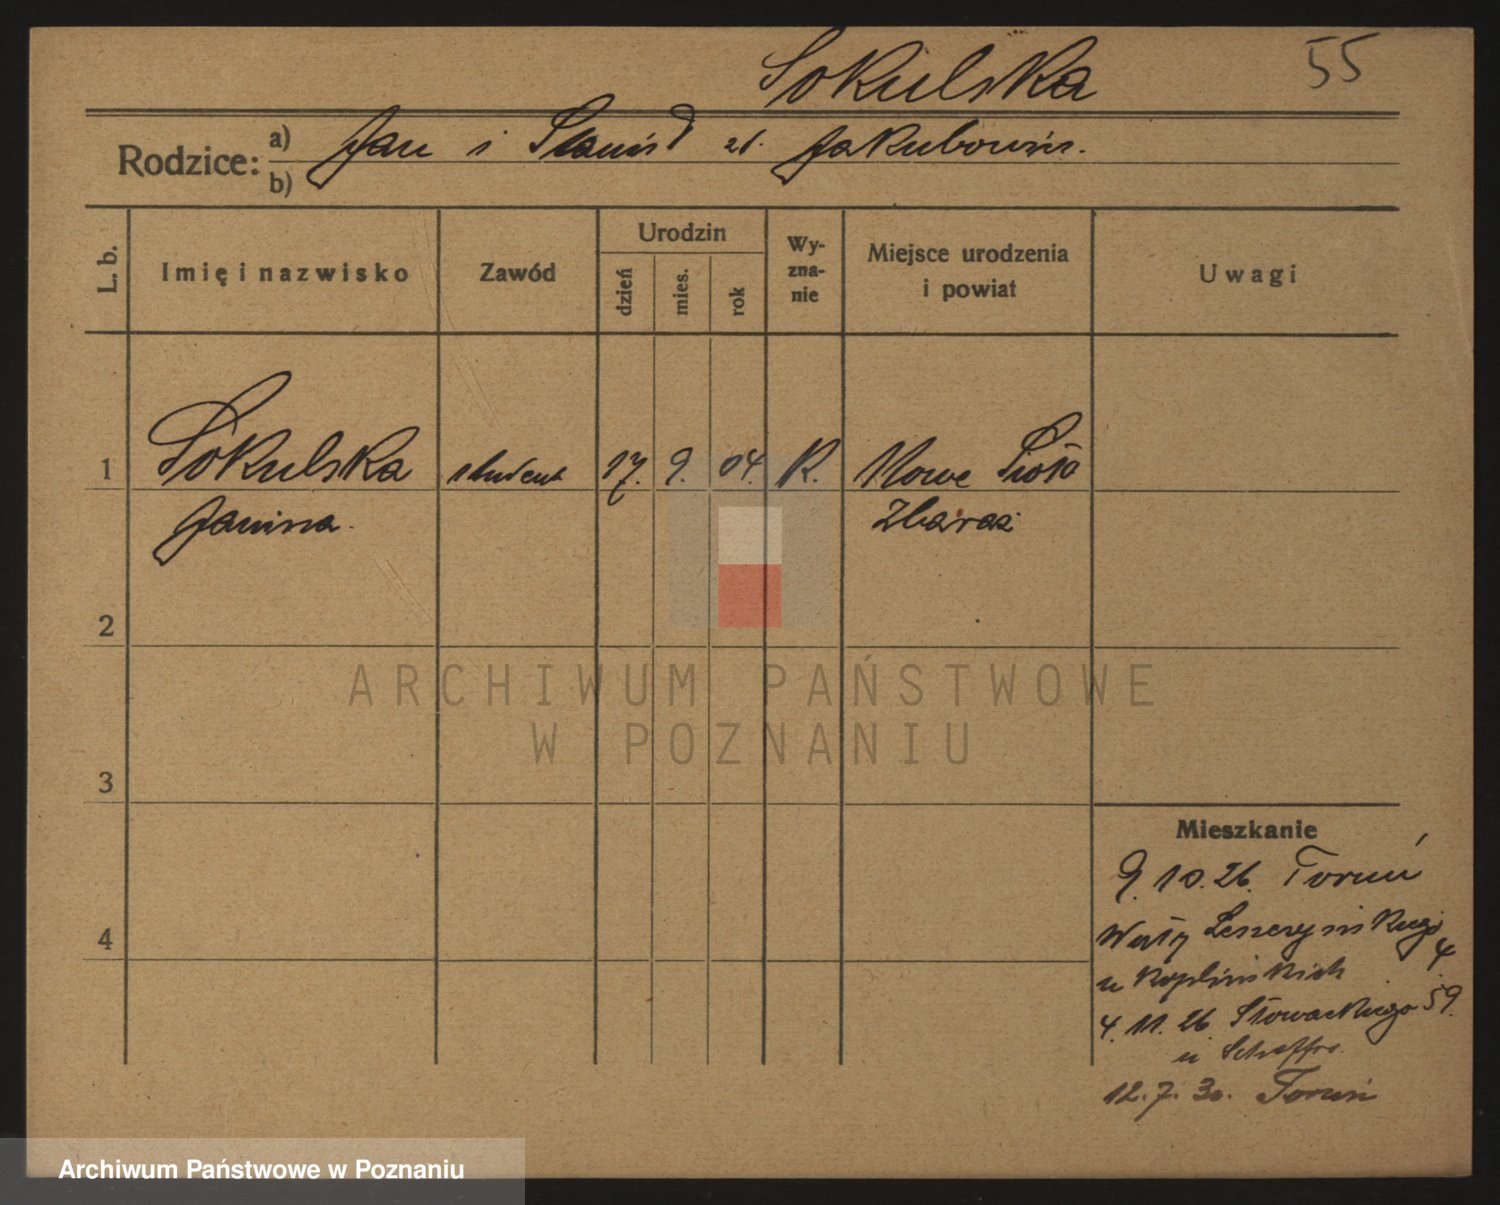 Sokulska 55
Rodzice: a) b) Jan i Stanisł z d. Jakubowin.
L. b.
Imię i nazwisko
Zawód
Urodzin
dzień
mies.
rok
Wy-
zna-
nie
Miejsce urodzenia
i powiat
Uwagi
1 Sokulska student 17. 9. 04. R. Nowe Sioło
Janina. Zbaraż
2
3
4
Mieszkanie
9.10.26. Toruń
Wały Leszczyńskiego 4
u
4.11.26 Słowackiego 59.
u
12.7.30. Toruń
ARCHIWUM PAŃSTWOWE
W POZNANIU
Archiwum Państwowe w Poznaniu